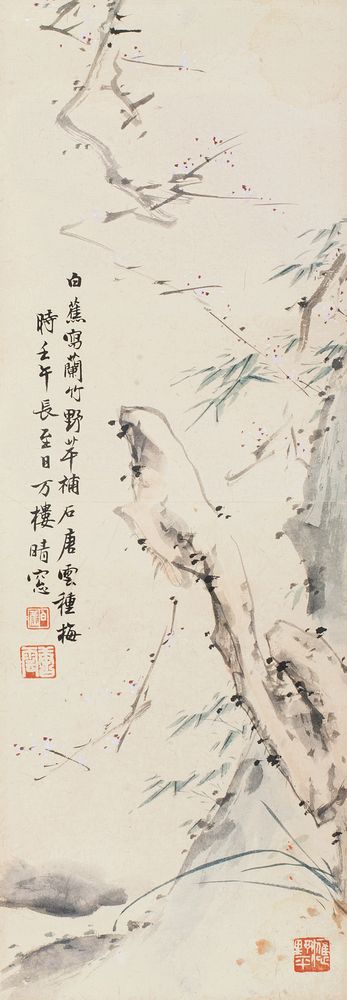 白蕉寫蘭竹野苹補石唐雲種梅
時壬午長至日万樓晴窓